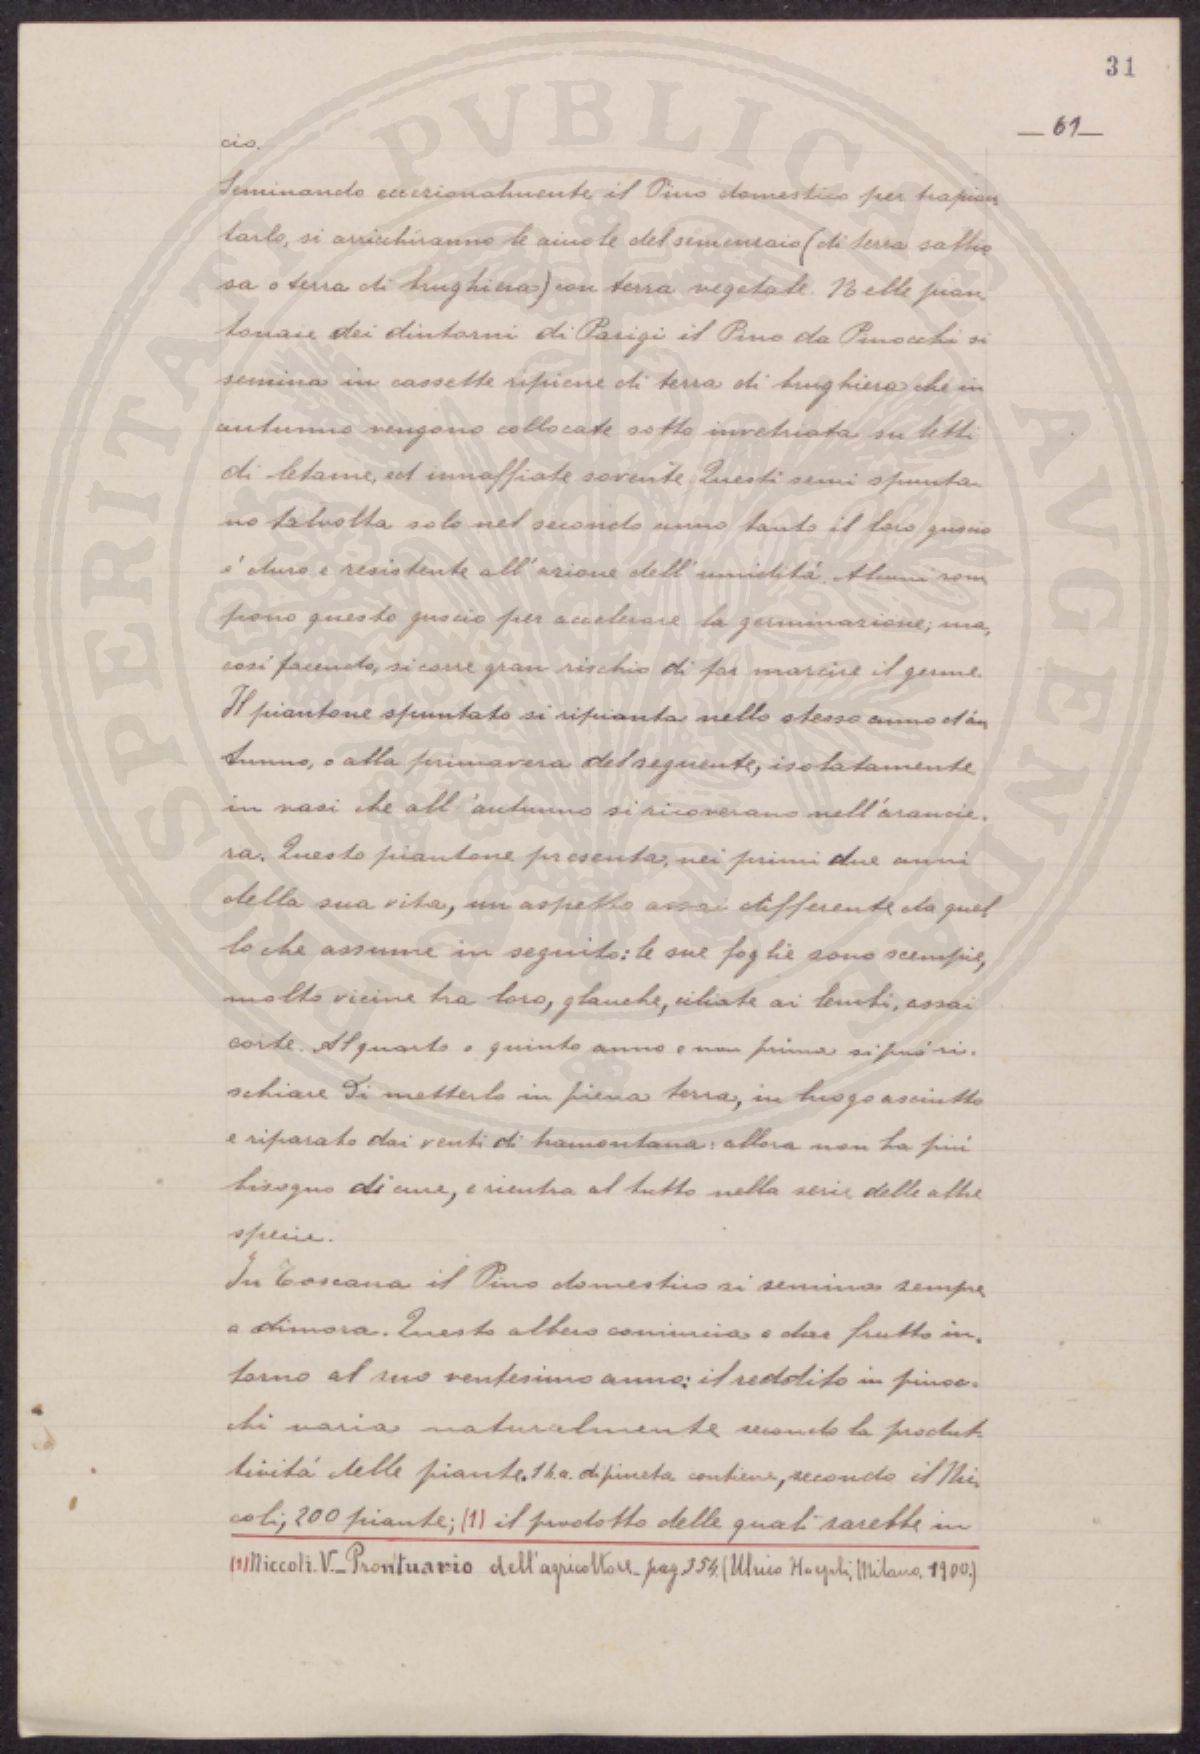 31
— 61 —
cio.
Seminando eccezionalmente il Pino domestico per trapian
tarlo, si arricchiranno le aiuole del semenzaio (di terra sabbio
sa o terra di brughiera) con terra vegetale. Nelle pian
tonaie dei dintorni di Parigi il Pino da Pinocchi si
semina in cassette ripiene di terra di brughiera che in
autunno vengono collocate sotto invetriata su letti
di letame, ed innaffiate sovente. Questi semi spunta-
no talvolta solo nel secondo anno tanto il loro guscio
é duro e resistente all'azione dell'umiditá. Alcuni rom
pono questo guscio per accelerare la germinazione; ma,
cosí facendo, si corre gran rischio di far marcire il germe.
Il piantone spuntato si ripianta nello stesso anno d'au
tunno, o alla primavera del seguente, isolatamente
in vasi che all'autunno si ricoverano nell'arancie-
ra. Questo piantone presenta, nei primi due anni
della sua vita, un aspetto assai differente da quel
lo che assume in seguito: le sue foglie sono scempie,
molto vicine tra loro, glauche, ciliate ai lembi, assai
corte. Al quarto o quinto anno e non prima si puó ri-
schiare di metterlo in piena terra, in luogo asciutto
e riparato dai venti di tramontana: allora non ha piú
bisogno di cure, e rientra al tutto nella serie delle altre
specie.
In Toscana il Pino domestico si semina sempre
a dimora. Questo albero comincia a dar frutto in-
torno al suo ventesimo anno: il reddito in pinoc-
chi varia naturalmente secondo la produt-
tivitá delle piante. 1 h.a. di pineta contiene, secondo il Nic
coli, 200 piante; (1) il prodotto delle quali sarebbe in
(1) Niccoli. V. _ Prontuario dell'agricoltore _ pag. 354. (Ulrico Hoepli, Milano. 1900.)
PROSPERITATI PVBLICAE AVGENDAE